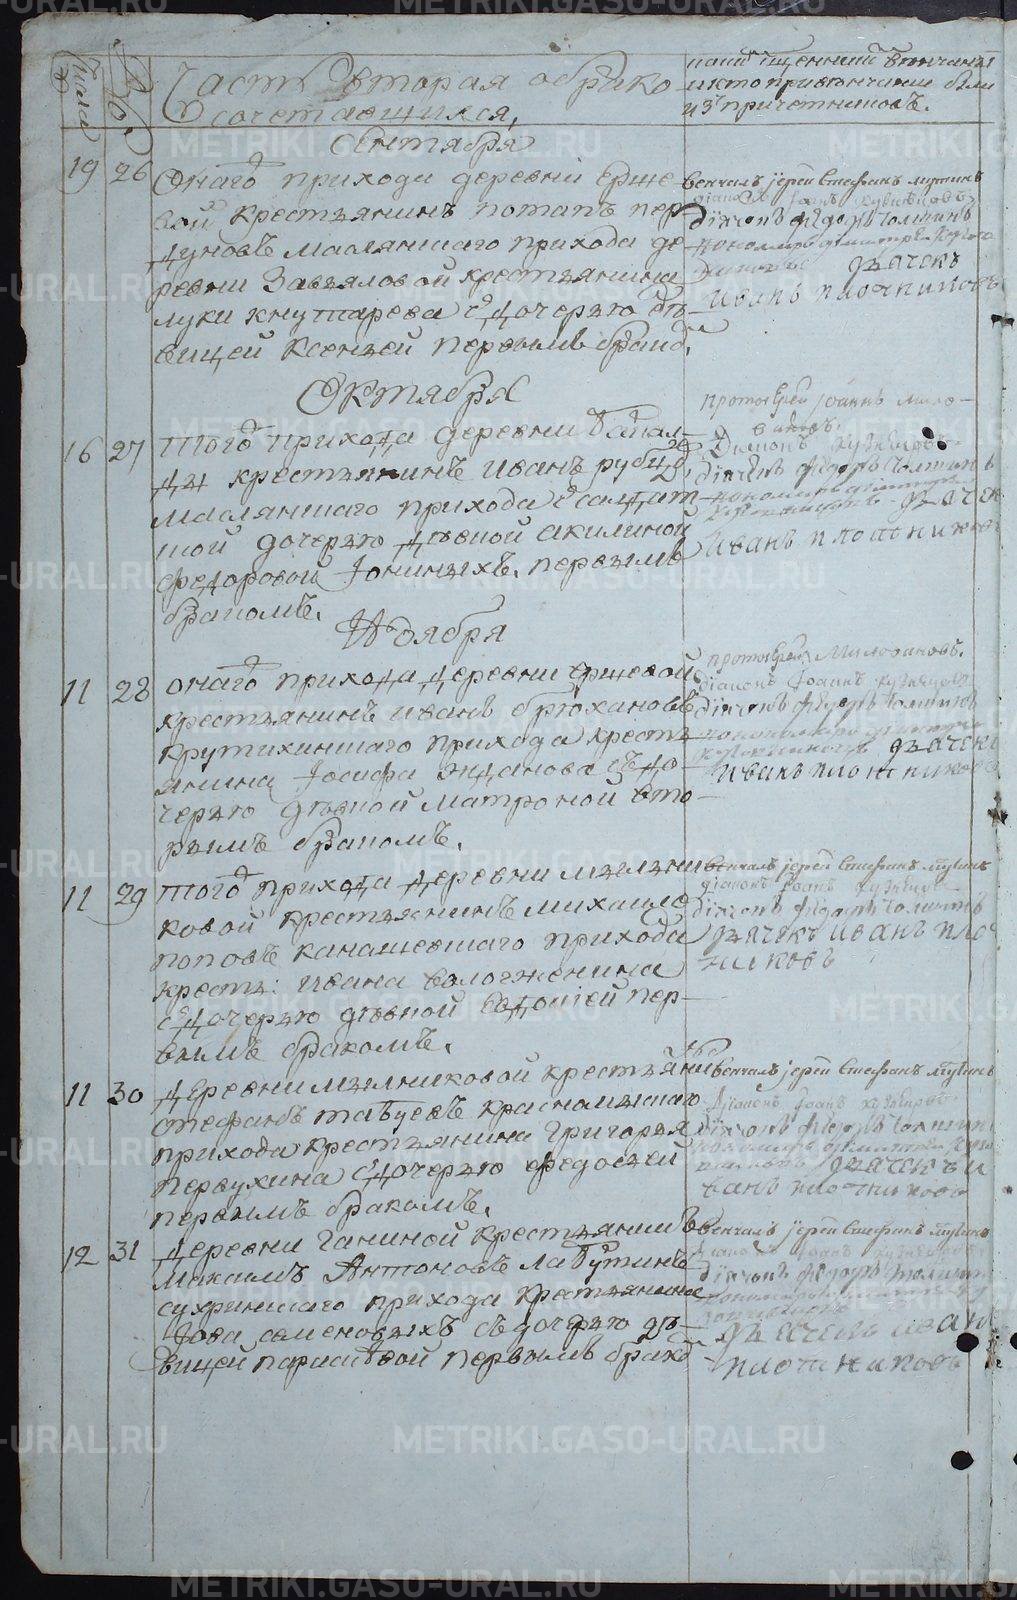 Числа
№
Часть вторая обрако
сочетающихся,
какой священникъ венчалъ
и кто при венчании были
изъ причетниковъ.
Сентября
19 26 Онагѡ прихода деревни Ерше
вой крестьянинъ потапъ пер
дуновъ маслянскаго прихода де
ревни Завьяловой крестьянина
луки кнутарева съ дочерью дѣ
вицей Ксенией первымъ бракѡ,
венчалъ иерей Стефанъ
дiаконъ Iоаннъ Кузнецовъ
дiячекъ Федоръ Топнинъ
пономарь димитрей
дьячекъ
Иванъ плотниковъ
Октября
16 27 Тогѡ прихода деревни
крестьянинъ иванъ рубцѡ,
маслянскаго прихода съ салдат
ской дочерью дѣвкой акилиной
федоровой Iониныхъ, первымъ
бракомъ,
протоiерей Iоаннъ Мило
видовъ.
Диаконъ Кузнецовъ
дiячекъ федоръ Топнинъ
пономарь димитрей
дьячек
Иванъ плотников
Ноября
11 28 онагѡ прихода деревни Ершевой
крестьянинъ иванъ брюхановъ
крутихинскаго прихода кресть
янина Iосифа Жданова съ до
черью дѣвкой матроной вто
рымъ бракомъ,
протоiерей Миловидовъ.
дiаконъ Iоаннъ Кузнецовъ
дiячекъ федоръ Топнинъ
пономарь димитрей
дьячекъ
Иванъ плотников
11 29 тогѡ прихода деревни мельни
ковой крестьянинъ михайло
поповъ канашевскаго прихода
кресть: ивана вологженина
съ дочерью дѣвкой Евдокiей пер
вымъ бракомъ,
венчалъ iерей Стефанъ
дiаконъ Iоаннъ Кузнецовъ
дiячекъ федоръ Топнинъ
дьячекъ Иванъ пло
никовъ
11 30 деревни мельниковой крестьянинъ
стефанъ крисномыскаго
прихода крестьянина Григорья
первухина съ дочерью федосьей
первымъ бракомъ,
венчалъ iерей Стефанъ
Дiаконъ Iоаннъ Кузнецовъ
дiячекъ Федоръ Топнин
пономарь димитрей
дьячекъ и
ванъ плотниковъ
12 31 деревни Ганиной крестьянинъ
Максимъ Антоновъ Лабутинъ
сухринскаго прихода крестьянина
Iова семеновыхъ съ дочерью дѣ
вицей парасковой первымъ бракѡ
венчалъ iерей Стефанъ
диаконъ Iоаннъ Кузнецовъ
дiячекъ федоръ Топнин
пономарь
дьячекъ иван
плотниковъ
METRIKI.GASO-URAL.RU